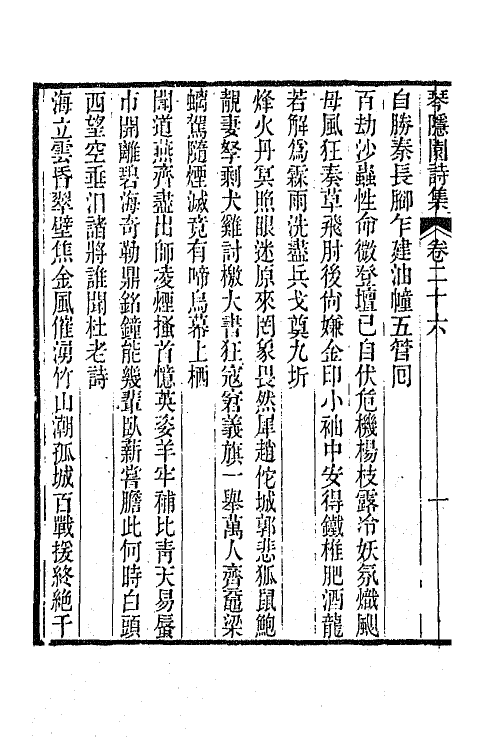 琴隱園詩集 卷二十六 一
自勝秦長腳乍建油幢五管囘
百劫沙蟲性命微登壇已自伏危機楊枝露冷妖氛熾颶
母風狂奏草飛肘後尙嫌金印小袖中安得鐵椎肥酒龍
若解爲霖雨洗盡兵戈奠九圻
烽火丹冥照眼迷原來罔象畏然犀趙佗城郭悲狐鼠鮑
靚妻孥剩犬雞討檄大書狂寇窘義旗一舉萬人齊黿梁
螭駕隨煙滅竟有啼烏幕上栖
聞道燕齊盡出師凌煙搔首憶英姿羊牢補比靑天易蜃
市開離碧海奇勒鼎銘鐘能幾輩臥薪嘗膽此何時白頭
西望空垂淚諸將誰聞杜老詩
海立雲昏翠壁焦金風催湧竹山潮孤城百戰援終絶千